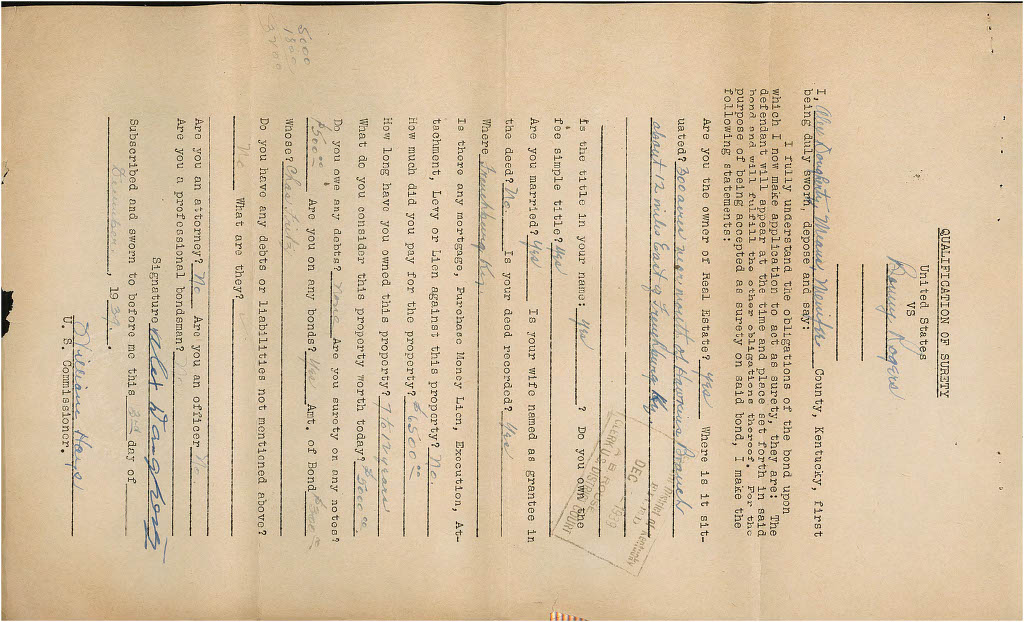 QUALIFICATION OF SURETY
United States
VS
Rogers
I, Alex Daugherty, Menifee County, Kentucky, first
being duly sworn, depose and say:
I fully understand the obligations of the bond upon
which I now make application to act as surety, they are: The
defendant will appear at the time and place set forth in said
bond and will fulfill the other obligations thereof. For the
purpose of being accepted as surety on said bond, I make the
following statements:
Are you the owner of Real Estate? Yes Where is it sit-
uated? 300 acres near mouth of Branch
about 12 miles East of Frenchburg Ky.
Is the title in your name: Yes ? Do you own the
fee simple title? Yes
Are you married? Yes Is your wife named as grantee in
the deed? No. Is your deed recorded? Yes
Where Frenchburg Ky.
Is there any mortgage, Purchase Money Lien, Execution, At-
tachment, Levy or Lien against this property? No.
How much did you pay for the property? $6500.00
How long have you owned this property? 7 to 12 years
What do you consider this property worth today? $5000.00
Do you owe any debts? none Are you surety on any notes?
$500.00 Are you on any bonds? Yes Amt. of Bond $500.00
Whose? Chas.
Do you have any debts or liabilities not mentioned above?
No What are they?
Are you an attorney? No Are you an officer No
Are you a professional bondsman? No
Signature
Subscribed and sworn to before me this 2nd day of
December, 1939.
William Hays
U. S. Commissioner.
5000
1800
DEC 1939
CLERK U.S. DISTRICT COURT